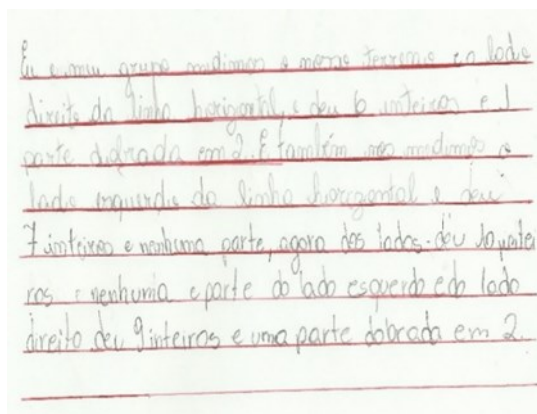 Eu e meu grupo medimos o mesmo terreno no lado
direito da linha horizontal, e deu 6 inteiros e 1
parte dobrada em 2. E também nós medimos o
lado esquerdo da linha horizontal e deu
7 inteiros e nenhuma parte, agora dos lados. deu 10 intei
ros e nenhuma e parte do lado esquerdo e do lado
direito deu 9 inteiros e uma parte dobrada em 2.